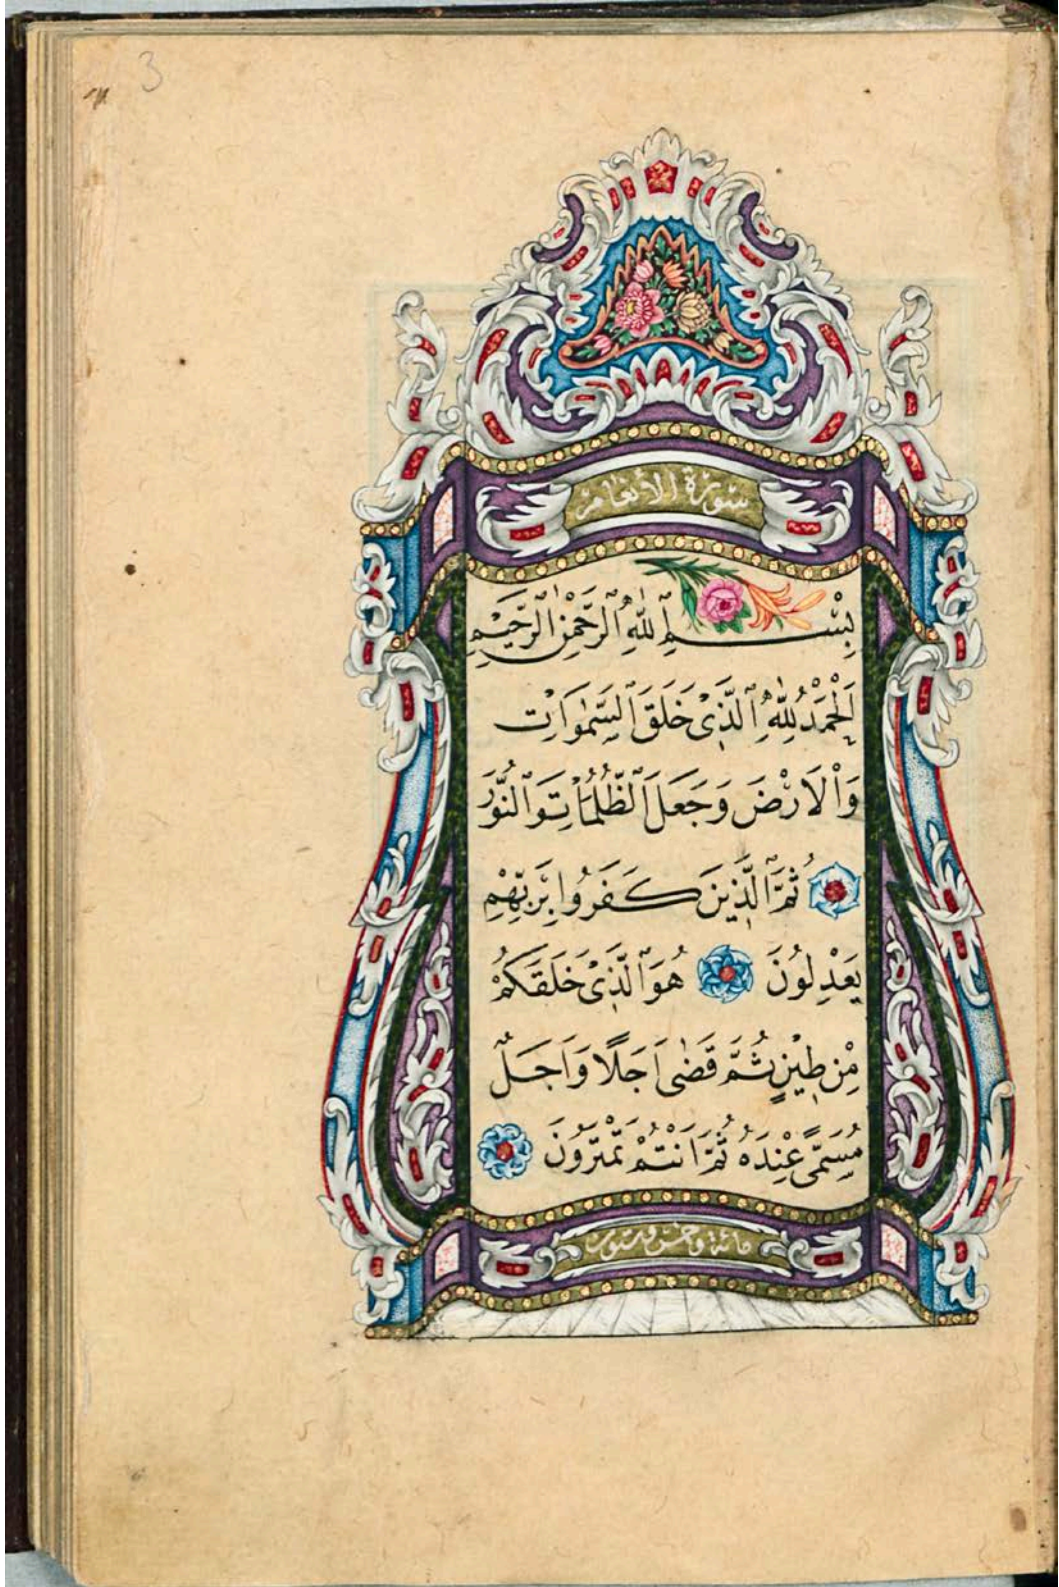 3
سورة الانعام
بِسْمِ ٱللّٰهِ ٱلرَّحْمٰنِ ٱلرَّحِيمِ
اَلْحَمْدُ لِلّٰهِ ٱلَّذِى خَلَقَ ٱلسَّمٰوَاتِ
وَٱلْاَرْضَ وَجَعَلَ ٱلظُّلُمَاتِ وَٱلنُّورَ
ثُمَّ ٱلَّذِينَ كَفَرُوا بِرَبِّهِمْ
يَعْدِلُونَ هُوَ ٱلَّذِى خَلَقَكُمْ
مِنْ طِينٍ ثُمَّ قَضٰى اَجَلًا وَاَجَلٌ
مُسَمًّى عِنْدَهُ ثُمَّ اَنْتُمْ تَمْتَرُونَ
مائة وخمس وستون